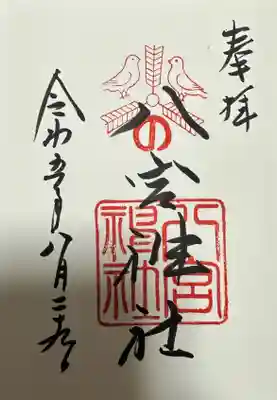 奉拝
八の宮神社
八宮神社
令和五年八月二